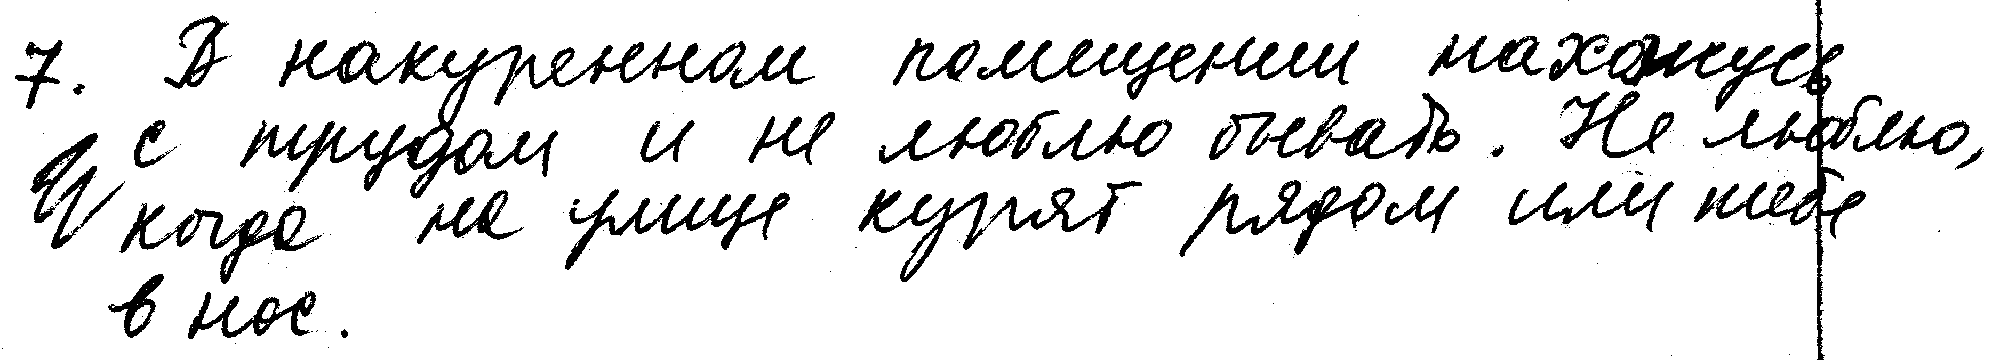 7. В накуренном помещении нахожусь
с трудом и не люблю бывать. Не люблю,
когда на улице курят рядом или тебе
в нос.